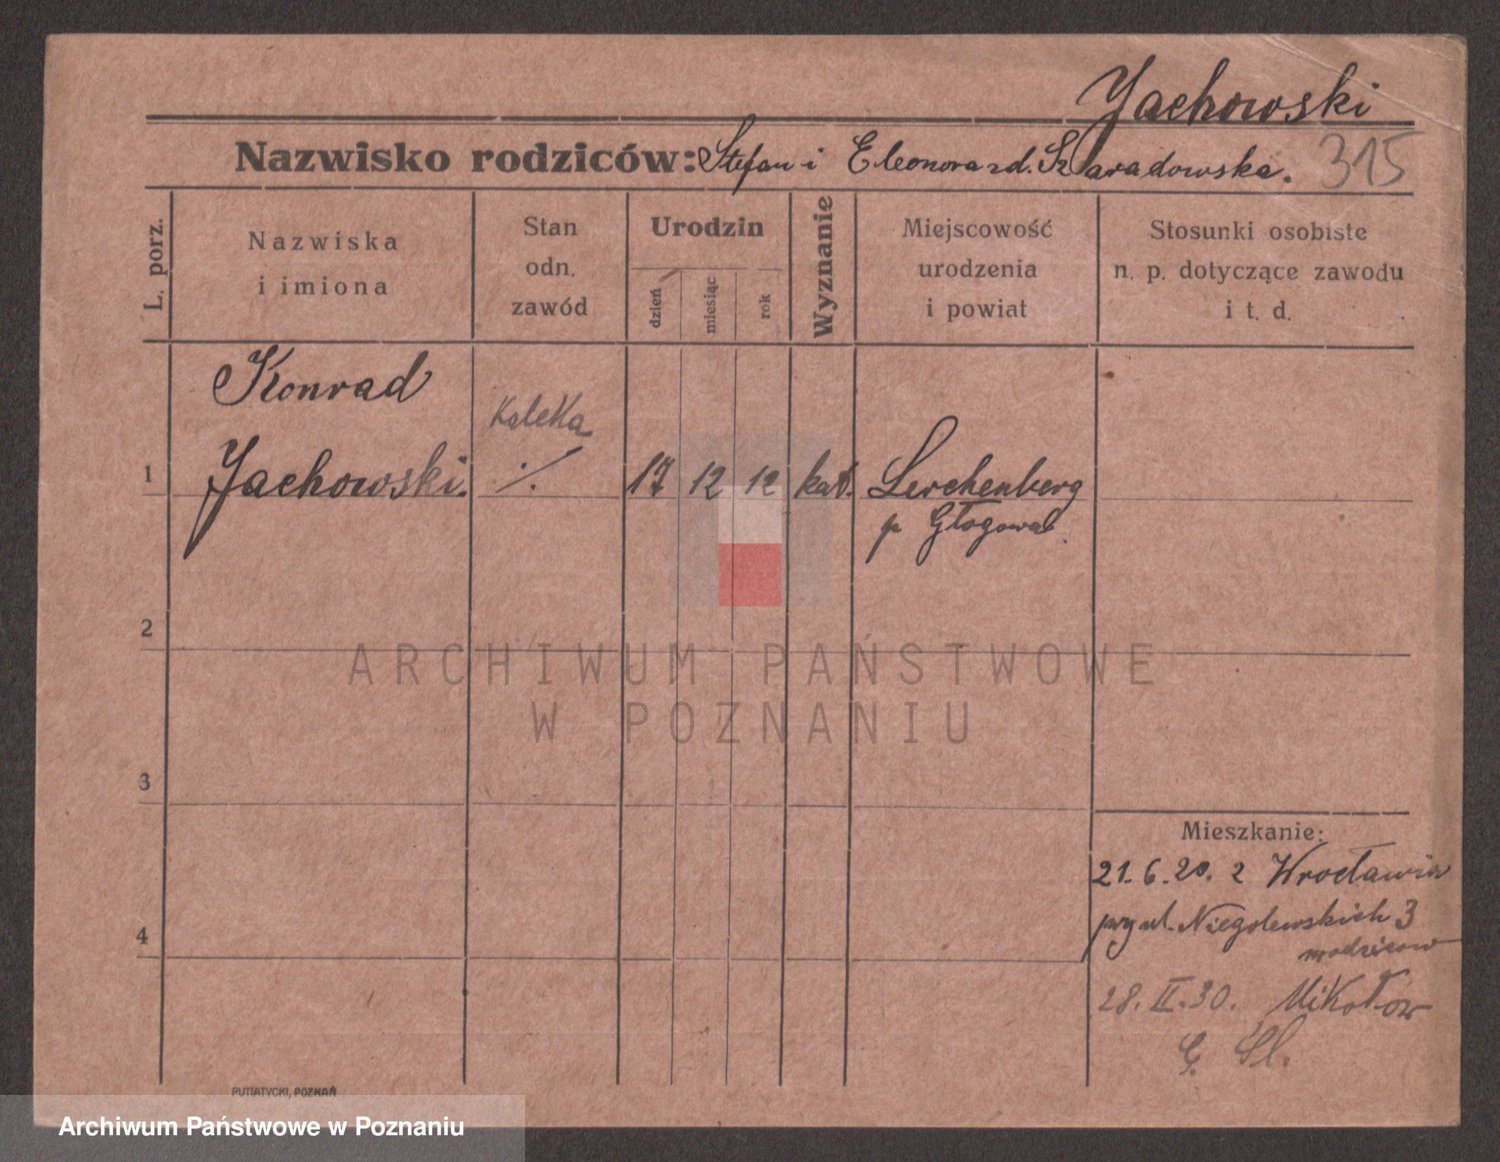 Jachowski
Nazwisko rodziców: Stefan i Eleonora zd. Szaradowska.
315
L. porz.
Nazwiska
i imiona
Stan
odn.
zawód
Urodzin
dzień
miesiąc
rok
Wyznanie
Miejscowość
urodzenia
i powiat
Stosunki osobiste
n. p. dotyczące zawodu
i t. d.
Konrad
kaleka
1
Jachowski.
./.
17
12
12
kat.
Lerchenberg
p Głogowa.
2
3
4
ARCHIWUM PAŃSTWOWE
W POZNANIU
Mieszkanie:
21.6.20. z Wrocławia
przy ul. Niegolewskich 3
u rodziców
28.II.30. Mikołów
G. Śl.
PUTIATYCKI, POZNAŃ
Archiwum Państwowe w Poznaniu